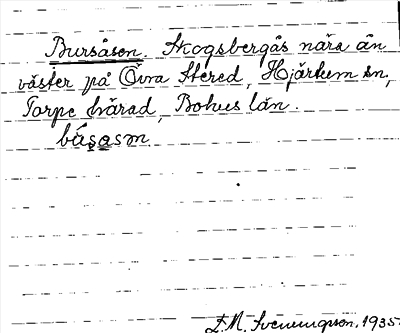 Bursåsen. Skogsbergås nära ån
väster på Övra Stered, Hjärtum sn,
Torpe härad, Bohus län.
båsasm
D.M. Svenungsson, 1935.